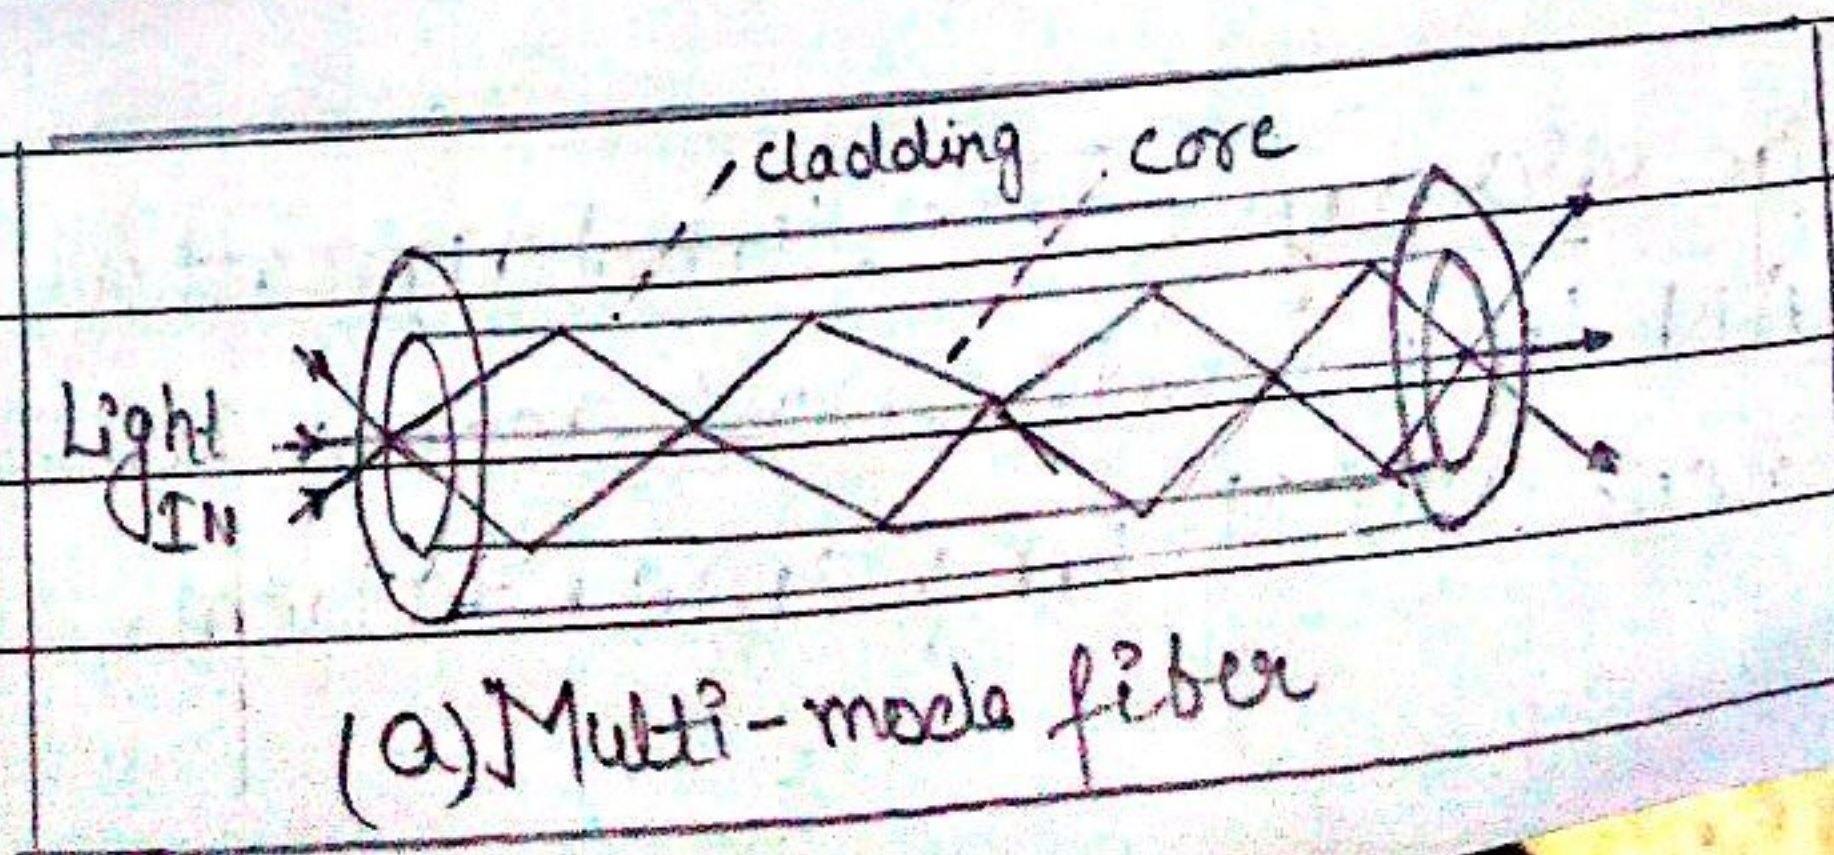 cladding core
Light
IN
(a) Multi-mode fiber